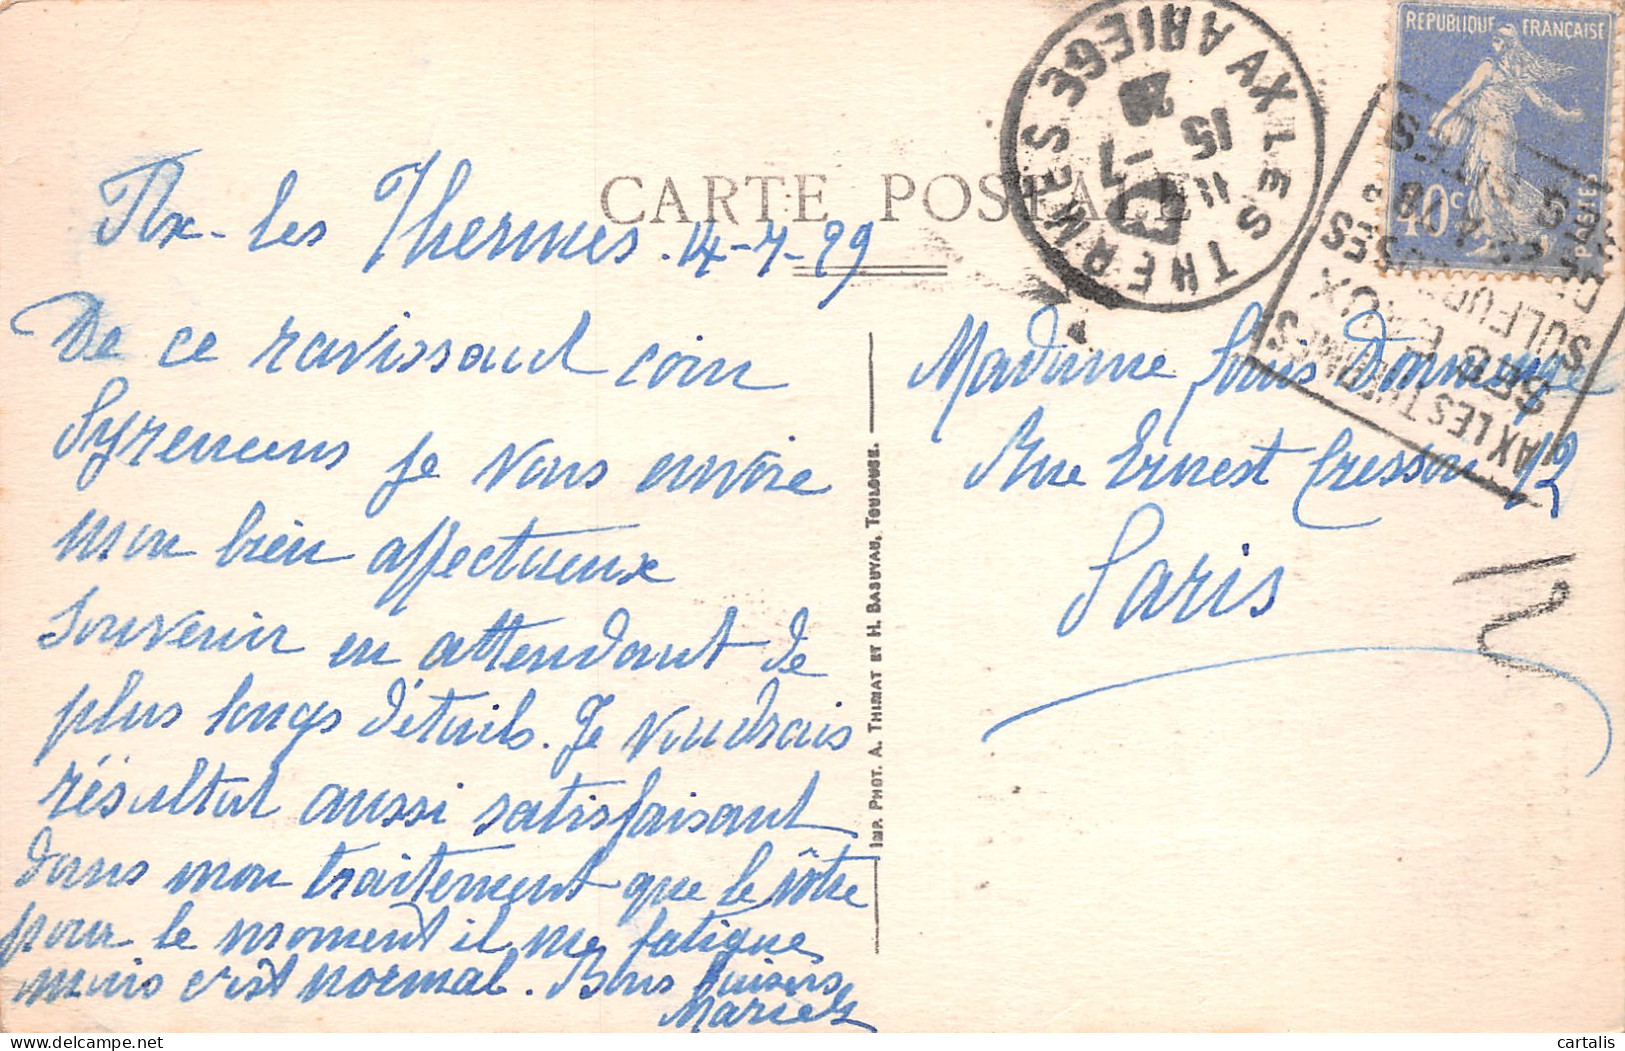 CARTE POSTALE
Ax-les Thermes. 14-7-29
De ce ravissant coin
Pyreneens je vous envoie
mon bien affectueux
souvenir en attendant de
plus longs détails. Je voudrais
résultat aussi satisfaisant
dans mon traitement que le vôtre
pour le moment il me fatigue
mais c'est normal. Bons baisers
Marcel
Madame Louis
Rue Ernest Cresson 12
Paris
IMP. PHOT. A. THIRIAT ET H. BASUYAU, TOULOUSE.
AX LES THERMES ARIEGE
15
REPUBLIQUE FRANÇAISE
40c
POSTES
AX LES THERMES
SES EAUX
SULFUREUSES
SES
SITES
cartalis
delcampe.net